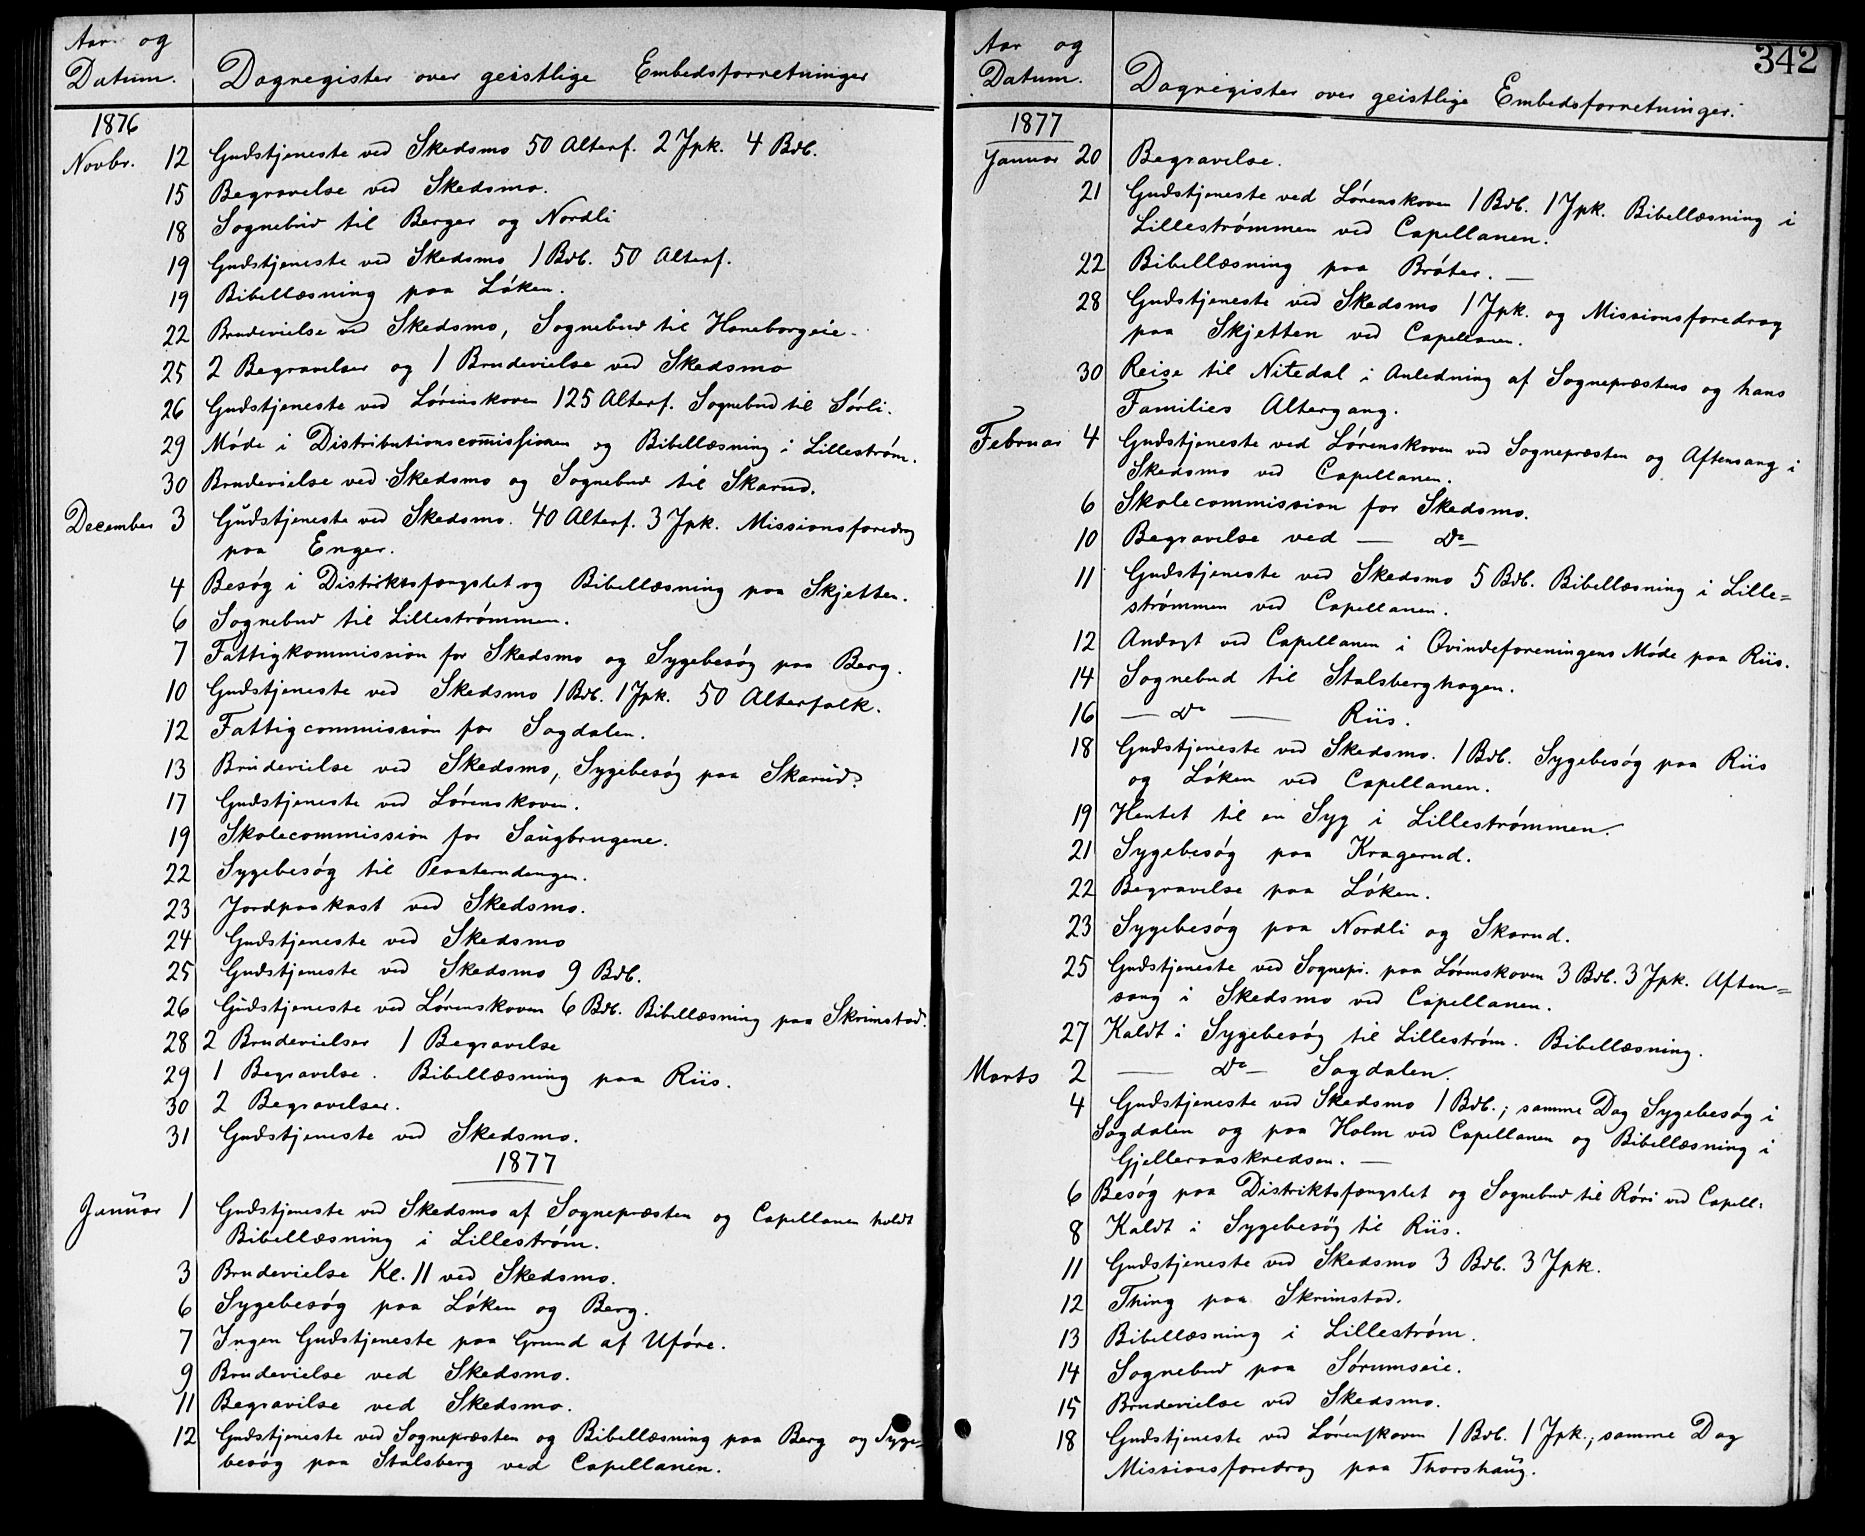 Aar og
Datum. Dagregister over geistlige Embedsforretninger
1876
Novbr. 12 Gudstjeneste ved Skedsmo 50 Alterf. 2 Jpk. 4 Bdb.
15 Begravelse ved Skedsmo.
18 Sognebud til Berger og Nordli
19 Gudstjeneste ved Skedsmo 1 Bdb. 50 Alterf.
19 Bibellæsning paa Løken.
22 Brudevielse ved Skedsmo, Sognebud til Haneborgeie.
25 2 Begravelser og 1 Brudevielse ved Skedsmo
26 Gudstjeneste ved Lørenskoven 125 Alterf. Sognebud til Sørli.
29 Møde i Distributionscom̄issionen og Bibellæsning i Lillestrøm.
30 Brudevielse ved Skedsmo og Sognebud til Skarud.
December 3 Gudstjeneste ved Skedsmo. 40 Alterf. 3 Jpk. Missionsforedrag
paa Enger.
4 Besøg i Distriktsfængslet og Bibellæsning paa Skjetten.
6 Sognebud til Lillestrømmen.
7 Fattigkommission for Skedsmo og Sygebesøg paa Berg.
10 Gudstjeneste ved Skedsmo 1 Bdb. 1 Jpk. 50 Alterfolk.
12 Fattigcommission for Sagdalen.
13 Brudevielse ved Skedsmo, Sygebesøg paa Skarud.
17 Gudstjeneste ved Lørenskoven.
19 Skolecommission for Saugbrugene.
22 Sygebesøg til
23 Jordpaakast ved Skedsmo.
24 Gudstjeneste ved Skedsmo
25 Gudstjeneste ved Skedsmo 9 Bdb.
26 Gudstjeneste ved Lørenskoven 6 Bdb. Bibellæsning paa Skrimstad.
28 2 Brudevielser 1 Begravelse
29 1 Begravelse. Bibellæsning paa Riis.
30 2 Begravelser.
31 Gudstjeneste ved Skedsmo.
1877
Januar 1 Gudstjeneste ved Skedsmo af Sognepræsten og Capellanen holdt
Bibellæsning i Lillestrøm.
3 Brudevielse Kl. 11 ved Skedsmo.
6 Sygebesøg paa Løken og Berg.
7 Ingen Gudstjeneste paa Grund af Uføre.
9 Brudevielse ved Skedsmo.
11 Begravilse ved Skedsmo.
12 Gudstjeneste ved Sognepræsten og Bibellæsning paa Berg og Syge=
besøg paa Stalsberg ved Capellanen.
342
Aar og
Datum. Dagregister over geistlige Embedsforretninger.
1877
Januar 20 Begravelse.
21 Gudstjeneste ved Lørenskoven 1 Bdb. 1 Jpk. Bibellæsning i
Lillestrømmen ved Capellanen.
22 Bibellæsning paa Bråter. —
28 Gudstjeneste ved Skedsmo 1 Jpk. og Missionsforedrag
paa Skjetten ved Capellanen.
30 Reise til Nitedal i Anledning af Sognepræstens og hans
Families Altergang.
Februar 4 Gudstjeneste ved Lørenskoven ved Sognepræsten og Aftensang i
Skedsmo ved Capellanen.
6 Skolecommission for Skedsmo.
10 Begravelse ved — Do —
11 Gudstjeneste ved Skedsmo 5 Bdb. Bibellæsning i Lille=
strømmen ved Capellanen.
12 Andagt ved Capellanen i Qvindeforeningens Møde paa Riis.
14 Sognebud til Stalsberghagen.
16 — Do — Riis.
18 Gudstjeneste ved Skedsmo. 1 Bdb. Sygebesøg paa Riis
og Løken ved Capellanen.
19 Hentet til en Syg i Lillestrømmen.
21 Sygebesøg paa Kragerud.
22 Begravelse paa Løken.
23 Sygebesøg paa Nordli og Skarud.
25 Gudstjeneste ved Sognepr. paa Lørenskoven 3 Bdb. 3 Jpk. Aften=
sang i Skedsmo ved Capellanen.
27 Kaldt i Sygebesøg til Lillestrøm. Bibellæsning.
Marts 2 — Do — Sagdalen.
4 Gudstjeneste ved Skedsmo 1 Bdb.; samme Dag Sygebesøg i
Sagdalen og paa Holm ved Capellanen og Bibellæsning i
Gjelleraaskredsen. —
6 Besøg paa Distriktsfængslet og Sognebud til Røri ved Capell:
8 Kaldt i Sygebesøg til Riis.
11 Gudstjeneste ved Skedsmo 3 Bdb. 3 Jpk.
12 Thing paa Skrimstad.
13 Bibellæsning i Lillestrøm.
14 Sognebud paa Sørumseie.
15 Brudevielse ved Skedsmo.
18 Gudstjeneste ved Lørenskoven 1 Bdb. 1 Jpk.; samme Dag
Missionsforedrag paa Thorshaug.